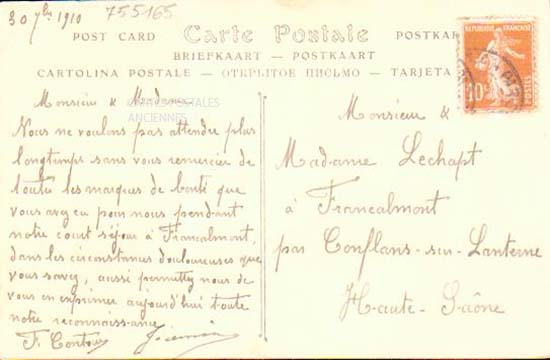 30 7bre 1910
755165
Carte Postale
POST CARD
POSTKA
BRIEFKAART — POSTKAART
CARTOLINA POSTALE — ОТКРЫТОЕ ПИСЬМО — TARJETA
REPUBLIQUE FRANÇAISE
10c
POSTES
CARTES POSTALES
ANCIENNES
Monsieur & Madame
Nous ne voulons pas attendre plus
longtemps sans vous remercier de
toutes les marques de bonté que
vous avez eu pour nous pendant
notre court séjour à Francalmont,
dans les circonstances douloureuses que
vous savez, aussi permettez nous de
vous en exprimer aujourd'hui toute
notre reconnaissance
F.
Monsieur &
Madame Lechapt
à Francalmont
par Conflans-sur-Lanterne
Haute-Saône